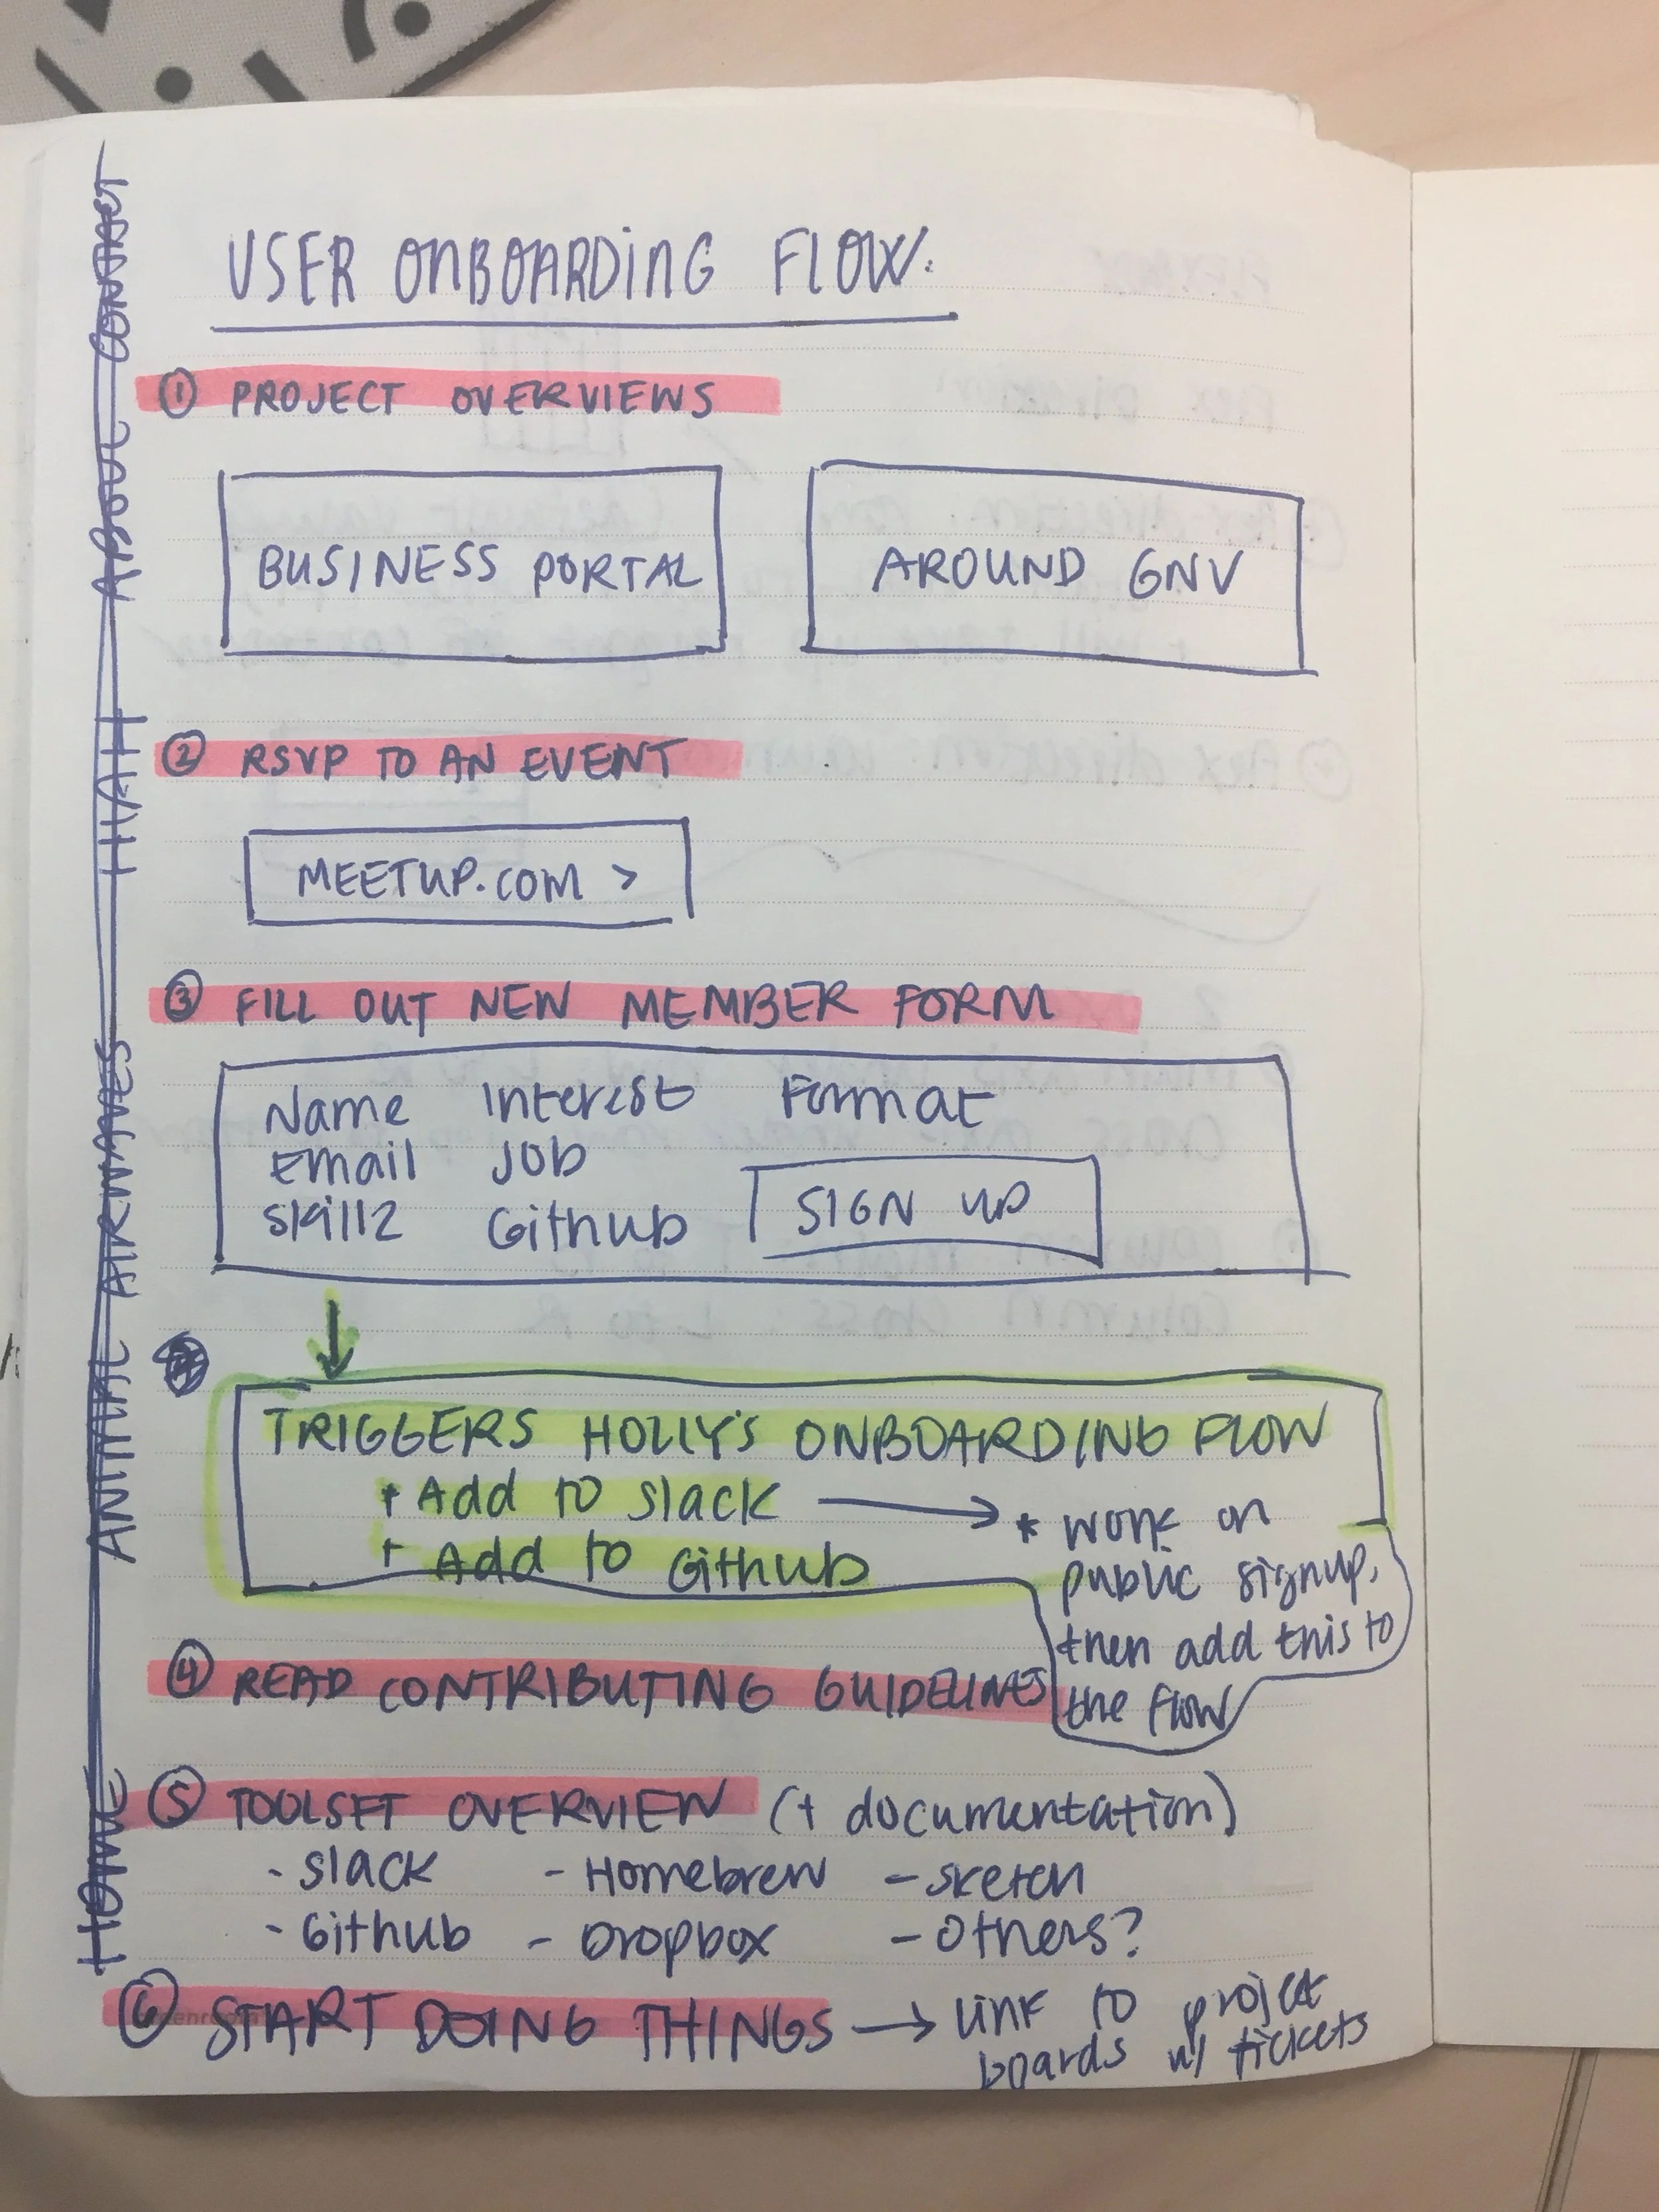 USER ONBOARDING FLOW:
① PROJECT OVERVIEWS
BUSINESS PORTAL
AROUND GNV
② RSVP TO AN EVENT
MEETUP.COM >
③ FILL OUT NEW MEMBER FORM
Name Interest Format
Email Job
Skillz Github
SIGN UP
TRIGGERS HOLLY'S ONBOARDING FLOW
+ Add to Slack
+ Add to Github
* work on
public signup,
then add this to
the flow
④ READ CONTRIBUTING GUIDELINES
⑤ TOOLSET OVERVIEW (+ documentation)
- Slack - Homebrew - Sketch
- Github - Dropbox - Others?
⑥ START DOING THINGS → link to project
boards w/ tickets
HOME ANIMAL AIRWAVES HIAH ABOUT CONTACT